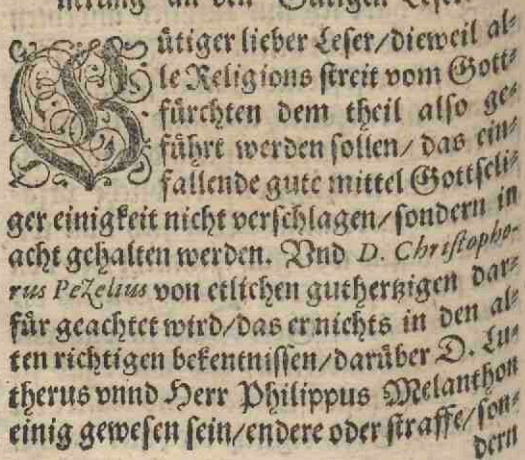 Gütiger lieber Leser/dieweil al-
le Religions streit vom Gott-
fürchten dem theil also ge-
führt werden sollen/ das ein-
fallende gute mittel Gottseli-
ger einigkeit nicht verschlagen/sondern in
acht gehalten werden. Vnd D. Christopho-
rus Pezelius von etlichen guthertzigen dar-
für geachtet wird/das er nichts in den al-
ten richtigen bekentnissen/darüber D. Lu-
therus vnnd Herr Philippus Melanthon
einig gewesen sein/endere oder straffe/son-
dern